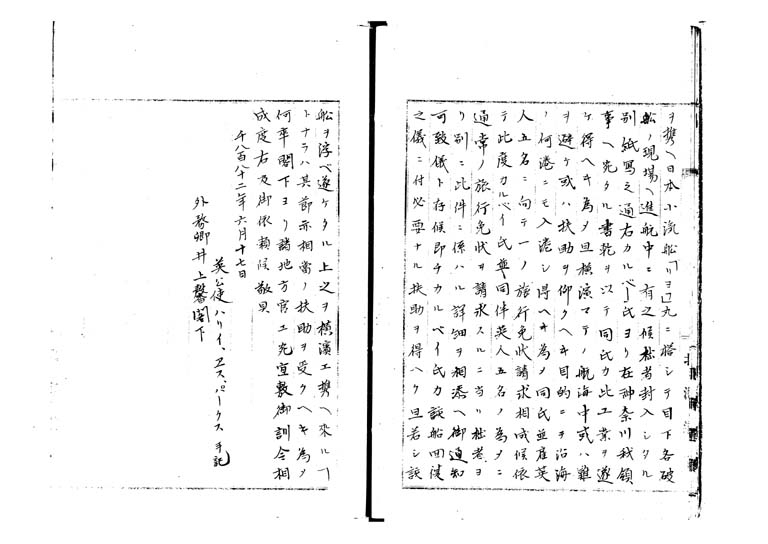 ヲ携ヘ日本小汽船「リヨ」丸ニ搭シテ目下各破
船ノ現場ヘ進航中ニ有之候拙者封入シタル
別紙寫之通右カルベー氏ヨリ在神奈川我領
事ヘ宛タル書乾ヲ以テ同氏カ此工業ヲ遂
ケ得ヘキ為メ且横濱マテノ航海中或ハ難
ヲ避ケ或ハ扶助ヲ仰クヘキ目的ニテ沿海
ノ何港ニモ入港シ得ヘキ為メ同氏並雇英
人五名ニ向テ一ノ旅行免状請求相成候依
テ此度カルベイ氏並同伴英人五名ノ為メニ
通常ノ旅行免状ヲ請求スルニ当リ拙者ヨ
リ別ニ此件ニ係ハル詳細ヲ相添ヘ御通知
可致儀ト存候即チカルベイ氏カ該船回復
之儀ニ付必要ナル扶助ヲ得ヘク且若シ該
船ヲ浮ベ遂ケタル上之ヲ横濱エ携ヘ来ルヿ
トナラハ其節亦相當ノ扶助ヲ受クヘキ為メ
何卒閣下ヨリ諸地方官エ宛宣敷御訓令相
成度右及御依頼候敬具
千八百八十二年六月十七日
英公使ハリイ、エス、パークス手記
外務卿井上馨閣下